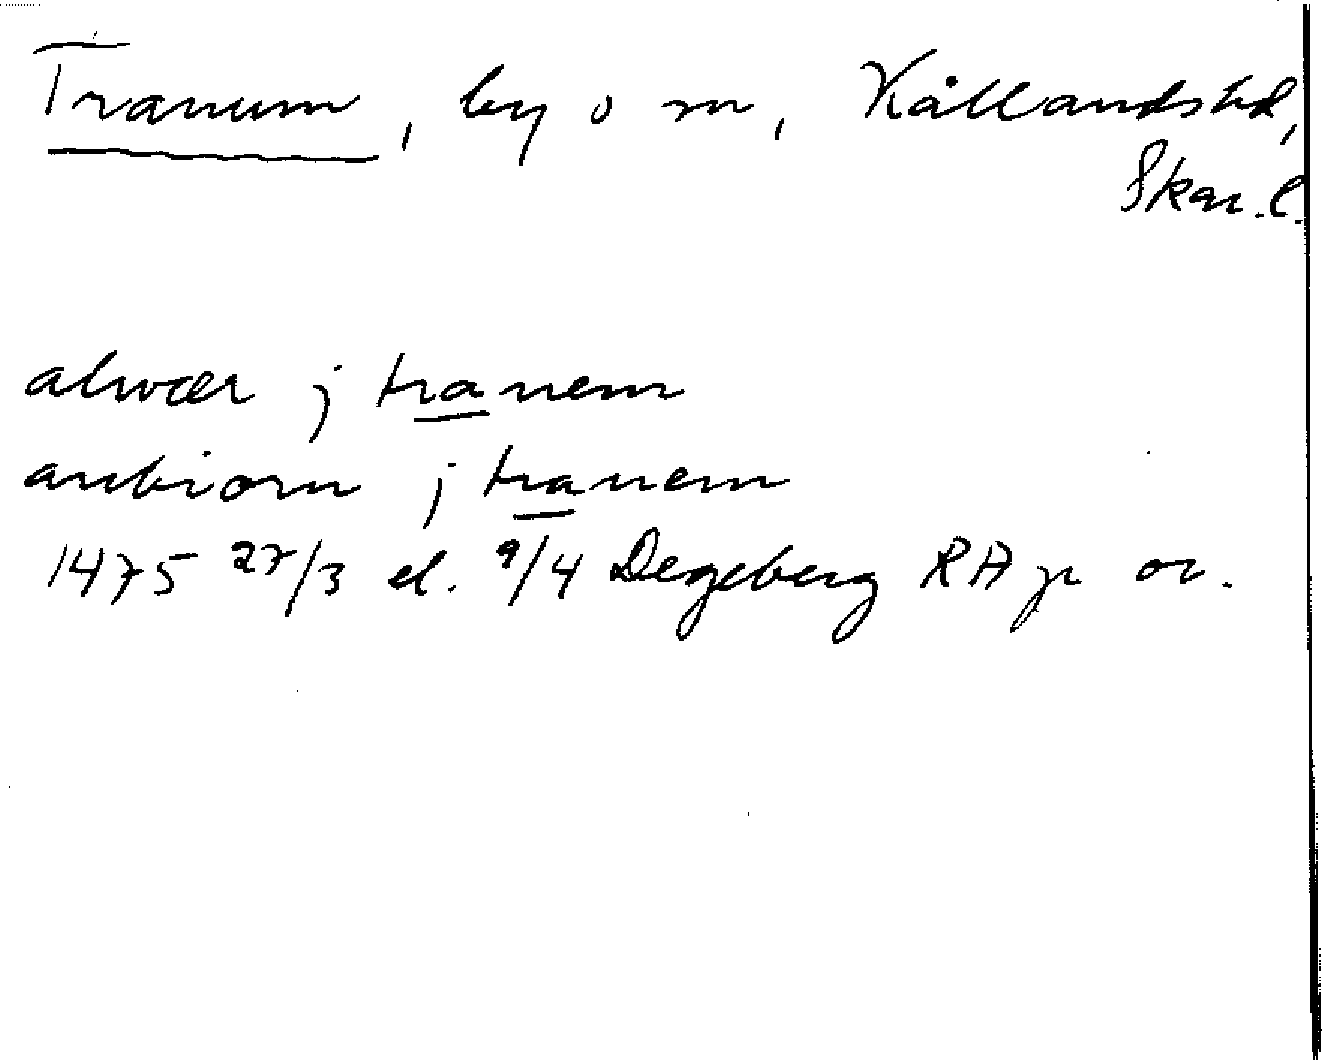 Tranum, by o sn, Kållandshd,
Skar. l.
alwær j tranem
anbiorn j tranem
1475 27/3 el. 9/4 Degeberg RA p or.